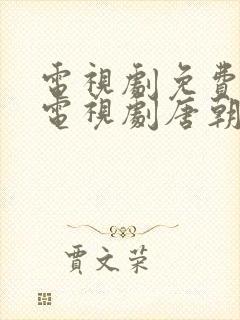 電視劇免費
電視劇唐朝
賈文荣